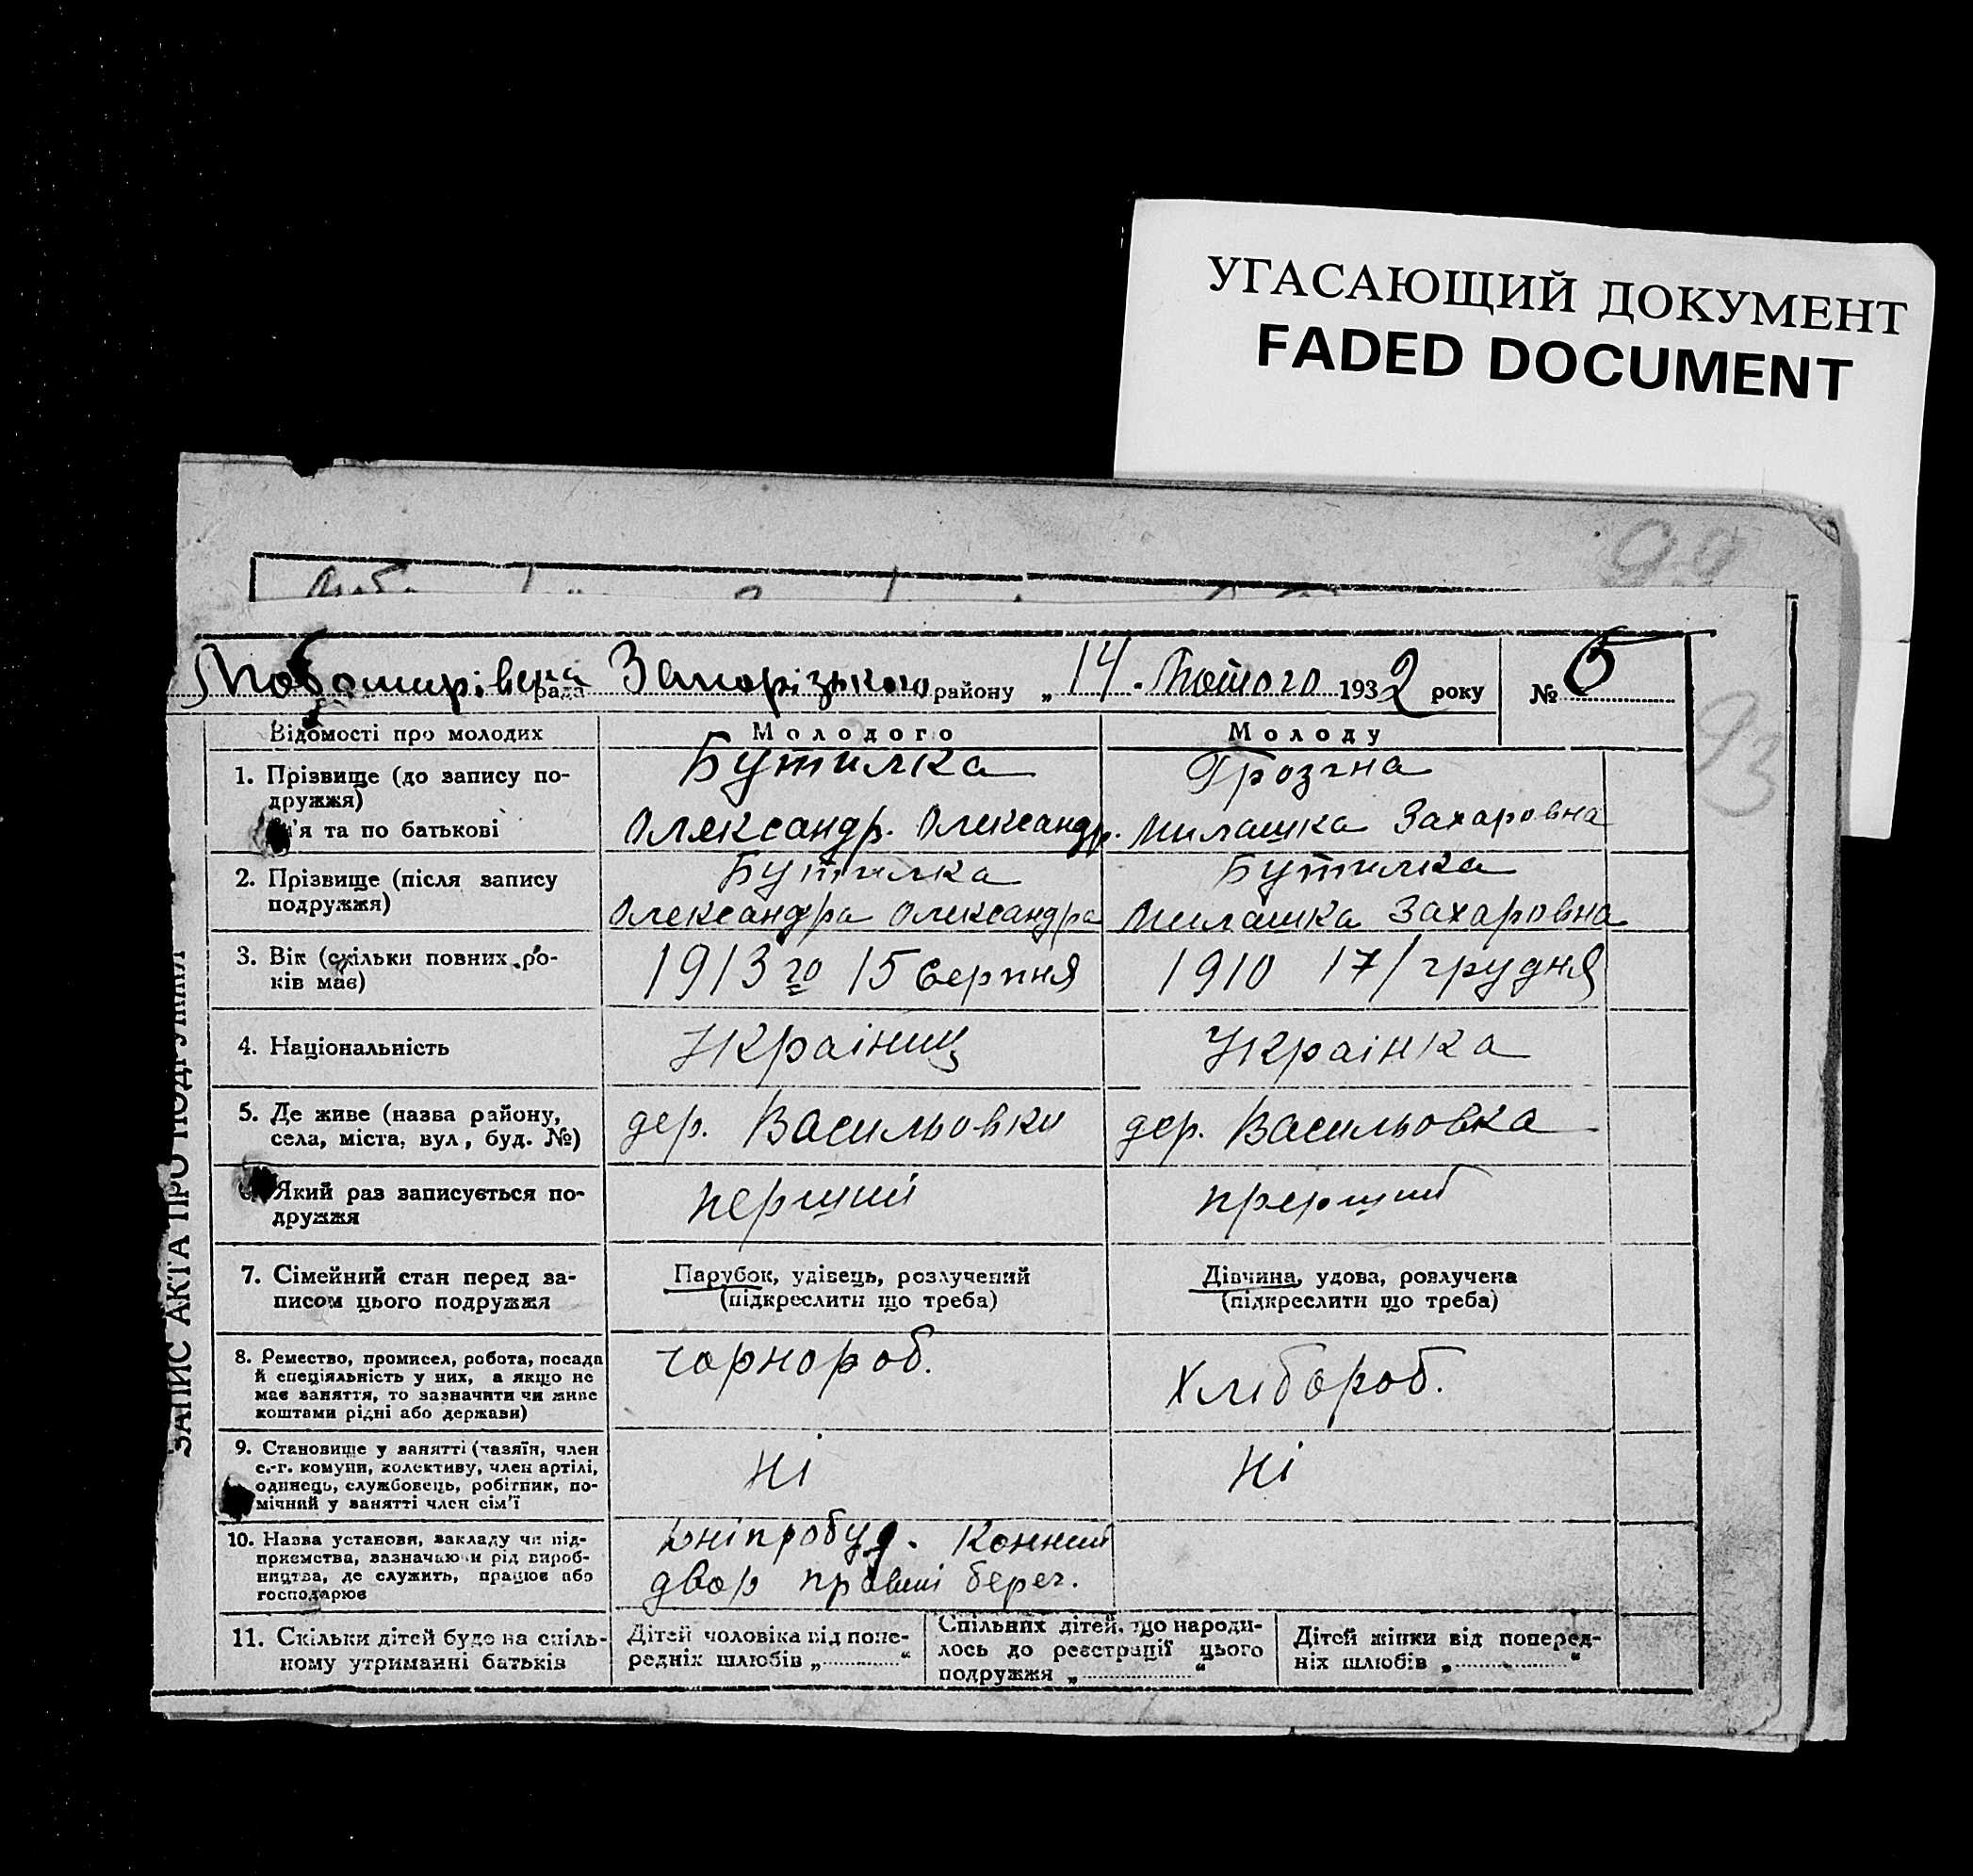 УГАСАЮЩИЙ ДОКУМЕНТ
FADED DOCUMENT
99
рада Запорізького району „ 14 . Лютого 1932 року № 5
93
ЗАПИС АКТА ПРО ПОДРУЖЖЯ
Відомості про молодих Молодого Молоду
1. Прізвище (до запису по-
дружжя)
Бутилка Грозіна
м'я та по батькові
Олександр. Олександр. Милашка Захаровна
2. Прізвище (після запису
подружжя)
Бутилка Бутилка
Олександра Олександра Милашка Захаровна
3. Вік (скільки повних ро-
ків має)
1913 го 15 серпня 1910 17/грудня
4. Національність Украінец Украінка
5. Де живе (назва району,
села, міста, вул, буд. №)
дер. Васильовки дер. Васильовка
Який раз записується по-
дружжя
перший прерший
7. Сімейний стан перед за-
писом цього подружжя
Парубок, удівець, розлучений
(підкреслити що треба)
Дівчина, удова, розлучена
(підкреслити що треба)
8. Ремество, промисел, робота, посада
й спеціяльність у них, а якщо не
має заняття, то зазначити чи живе
коштами рідні або держави)
чорнороб. Хлібороб.
9. Становище у занятті (хазяїн, член
с.-г. комуни, колективу, член артілі,
одинець, службовець, робітник, по-
мічний у занятті член сім'ї
Ні Ні
10. Назва установи, закладу чи під-
приємства, зазначаючи рід вироб-
ництва, де служить, працює або
господарює
Дніпробуд. Конний
двор правий берег.
11. Скільки дітей буде на спіль-
ному утриманні батьків
Дітей чоловіка від попе-
редніх шлюбів „ “
Спільних дітей, що народи-
лось до реєстрації цього
подружжя „ “
Дітей жінки від поперед-
ніх шлюбів „ “